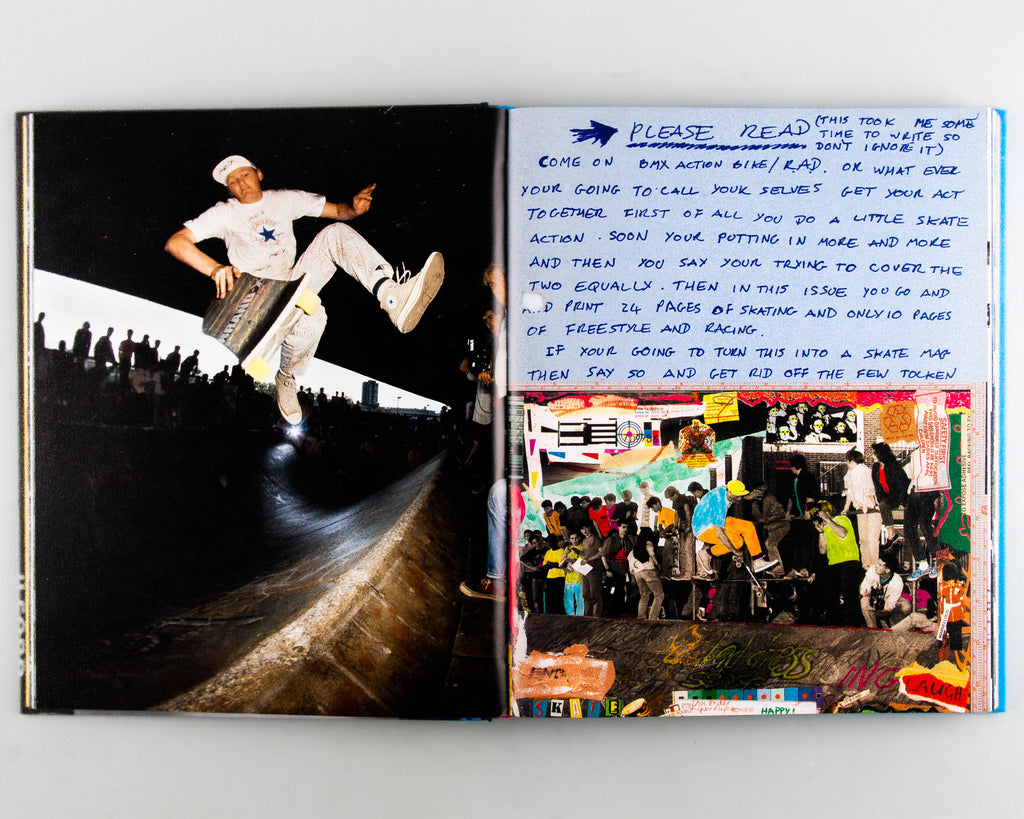 PLEASE READ (THIS TOOK ME SOME
TIME TO WRITE SO
DON'T IGNORE IT)
COME ON BMX ACTION BIKE/R.A.D. OR WHAT EVER
YOUR GOING TO CALL YOUR SELVES GET YOUR ACT
TOGETHER FIRST OF ALL YOU DO A LITTLE SKATE
ACTION. SOON YOUR PUTTING IN MORE AND MORE
AND THEN YOU SAY YOUR TRYING TO COVER THE
TWO EQUALLY. THEN IN THIS ISSUE YOU GO AND
AND PRINT 24 PAGES OF SKATING AND ONLY 10 PAGES
OF FREESTYLE AND RACING.
IF YOUR GOING TO TURN THIS INTO A SKATE MAG
THEN SAY SO AND GET RID OFF THE FEW TOCKEN
SAFETY FIRST
ING
LAUGH
SKATE
HAPPY!